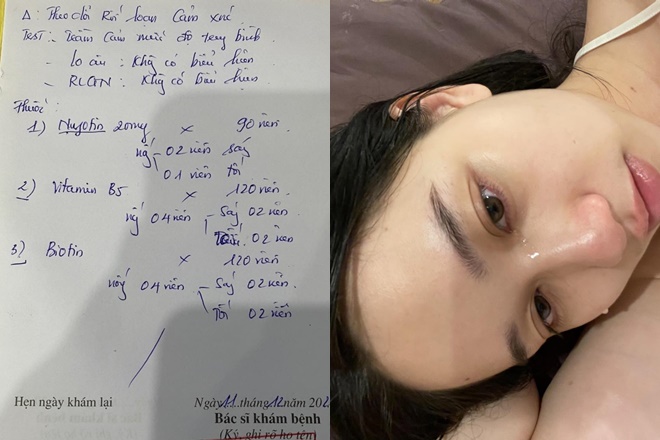 Δ: Theo dõi Rối loạn Cảm xúc
Test: Trầm cảm mức độ trung bình
- lo âu: Khg có biểu hiện
- RLCTN: Khg có biểu hiện
Thuốc:
1) Nuyotin 20mg x 90 viên
02 viên sáng
01 viên tối
2) Vitamin B5 x 120 viên
04 viên - Ság 02 viên
Tối 02 viên
3) Biotin x 120 viên
04 viên - Ság 02 viên
Tối 02 viên
Hẹn ngày khám lại Ngày 11 tháng 12 năm 202
Bác sĩ khám bệnh
(Ký, ghi rõ họ tên)